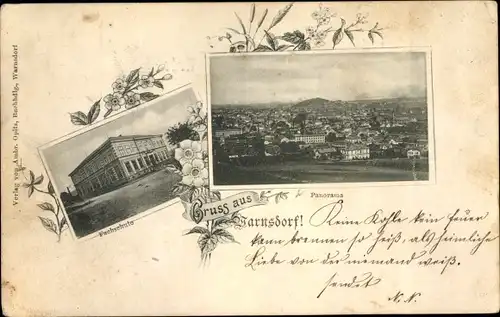 Verlag von Ambr. Opitz, Buchhdlg, Warnsdorf
Fachschule
Panorama
Gruss aus
Warnsdorf!
Keine Kohle kein Feuer
kann brennen so heiß, als heimliche
Liebe von der niemand weiß.
sendet
N. N.